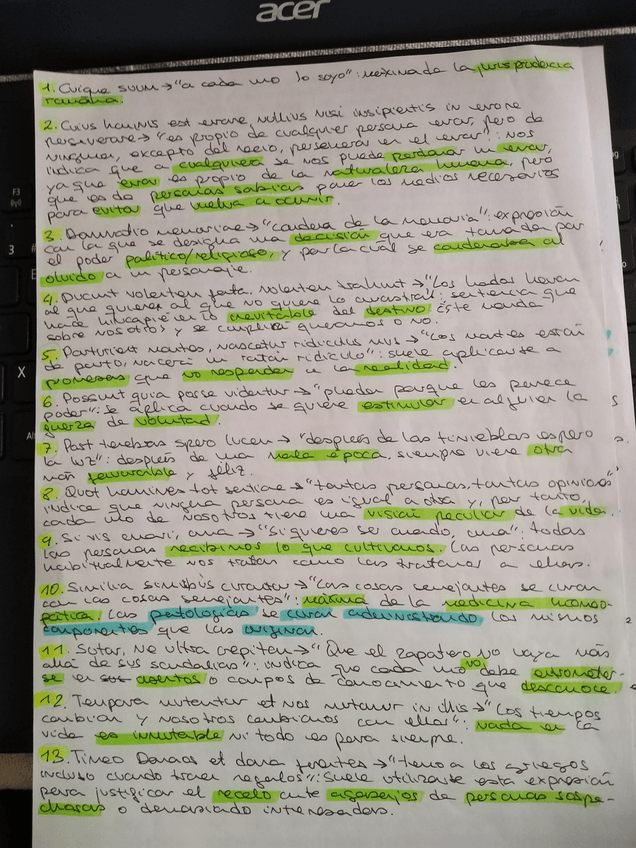 acer
1. Cuique suum → "a cada uno lo suyo": máxima de la jurisprudencia
romana.
2. Cuius hominis est errare, nullius nisi insipientis in errore
perseverare → "es propio de cualquier persona errar, pero de
ninguna, excepto del necio, perseverar en el errar": nos
indica que a cualquiera se nos puede perdonar un error,
ya que errar es propio de la naturaleza humana, pero
que es de personas sabias poner los medios necesarios
para evitar que vuelva a ocurrir.
3. Damnatio memoriae → "condena de la memoria": expresión
con la que se designa una decisión que era tomada por
el poder político/religioso, y por la cual se condenaba al
olvido a un personaje.
4. Ducunt volentem fata, nolentem trahunt → "Los hados llevan
al que quiere, al que no quiere lo arrastra": sentencia que
hace hincapié en lo inevitable del destino. Éste manda
sobre nosotros y se cumplirá queramos o no.
5. Parturient montes, nascetur ridiculus mus → "Los montes están
de parto, nacerá un ratón ridículo": suele aplicarse a
promesas que no responden a la realidad.
6. Possunt quia posse videntur → "pueden porque les parece
poder": se aplica cuando se quiere estimular en alguien la
fuerza de voluntad.
7. Post tenebras spero lucem → "después de las tinieblas espero
la luz": después de una mala época, siempre viene otra
más favorable y feliz.
8. Quot homines tot sententiae → "tantas personas, tantas opiniones"
indica que ninguna persona es igual a otra y, por tanto,
cada uno de nosotros tiene una visión peculiar de la vida.
9. Si vis amari, ama → "Si quieres ser amado, ama": todas
las personas recibimos lo que cultivamos. Las personas
habitualmente nos tratan como las tratamos a ellas.
10. Similia similibus curantur → "Las cosas semejantes se curan
con las cosas semejantes": máxima de la medicina homeo-
pática, las patologías se curan administrando los mismos
componentes que las originan.
11. Sutor, ne ultra crepidam → "Que el zapatero no vaya más
allá de sus sandalias": indica que cada uno no debe entrometer-
se en asuntos o campos de conocimiento que desconoce.
12. Tempora mutantur et nos mutamur in illis → "Los tiempos
cambian y nosotros cambiamos con ellos": nada en la
vida es inmutable ni todo es para siempre.
13. Timeo Danaos et dona ferentes → "temo a los griegos
incluso cuando traen regalos": Suele utilizarse esta expresión
para justificar el recelo ante agasajos de personas sospe-
chosas o demasiado interesadas.